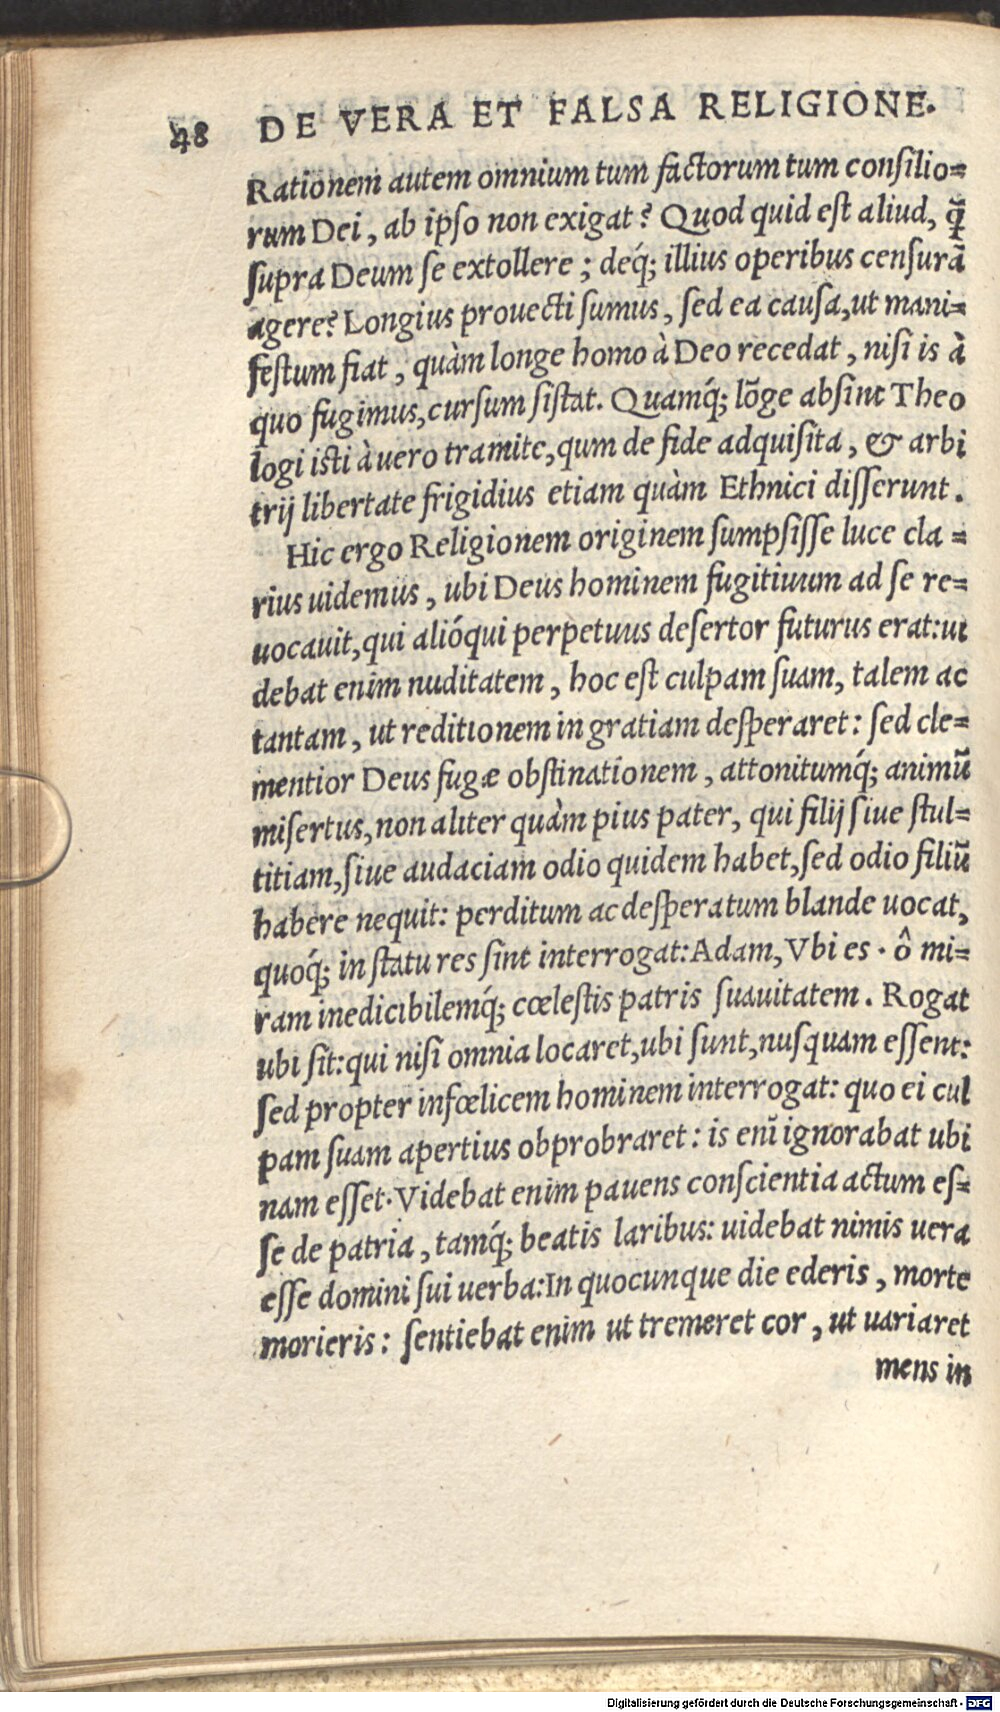 48 DE VERA ET FALSA RELIGIONE.
Rationem autem omnium tum factorum tum consilio=
rum Dei, ab ipso non exigat? Quod quid est aliud, q̃
supra Deum se extollere; deq́; illius operibus censurã
agere? Longius prouecti sumus, sed ea causa, ut mani=
festum fiat, quàm longe homo à Deo recedat, nisi is à
quo fugimus, cursum sistat. Quamq́; lõge absint Theo
logi isti à uero tramite, qum de fide adquisita, & arbi
trij libertate frigidius etiam quàm Ethnici disserunt.
Hic ergo Religionem originem sumpsisse luce cla=
rius uidemus, ubi Deus hominem fugitiuum ad se re=
uocauit, qui alióqui perpetuus desertor futurus erat: ui
debat enim nuditatem, hoc est culpam suam, talem ac
tantam, ut reditionem in gratiam desperaret: sed cle=
mentior Deus fugæ obstinationem, attonitumq́; animũ
misertus, non aliter quàm pius pater, qui filij siue stul=
titiam, siue audaciam odio quidem habet, sed odio filiũ
habere nequit: perditum ac desperatum blande uocat,
quoq́; in statu res sint interrogat: Adam, Vbi es. ô mi=
ram inedicibilemq́; cœlestis patris suauitatem. Rogat
ubi sit: qui nisi omnia locaret, ubi sunt, nusquam essent:
sed propter infœlicem hominem interrogat: quo ei cul
pam suam apertius obprobraret: is enĩ ignorabat ubi
nam esset. Videbat enim pauens conscientia actum es=
se de patria, tamq́; beatis laribus: uidebat nimis uera
esse domini sui uerba: In quocunque die ederis, morte
morieris: sentiebat enim ut tremeret cor, ut uariaret
mens in
Digitalisierung gefördert durch die Deutsche Forschungsgemeinschaft - DFG